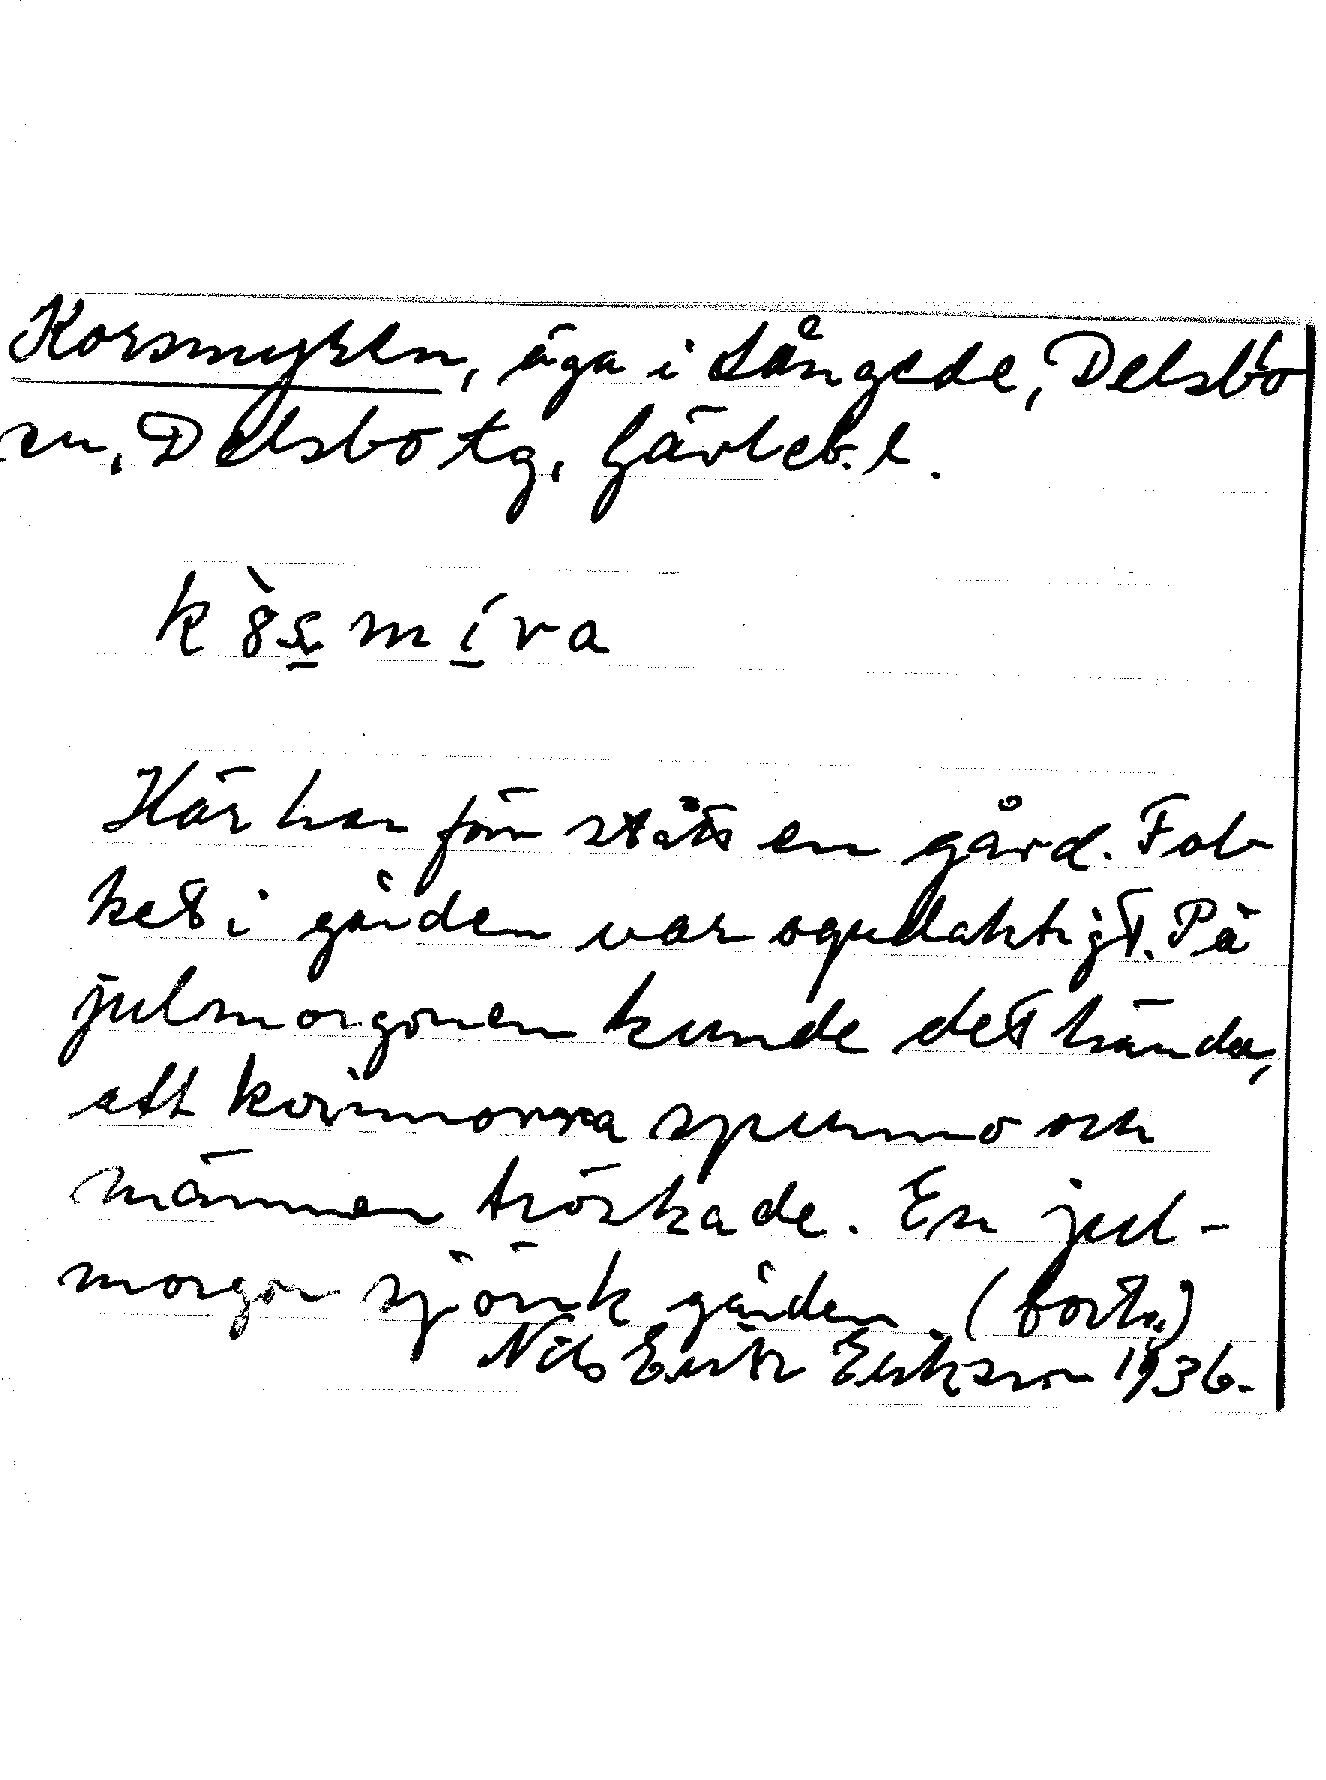 Korsmyren, äga i Långede, Delsbo
sn, Delsbo tg, Gävleb. l.
k ò̀s̲ m í̲ r a
Här har förr stått en gård. Fol-
ket i gården var ogudaktigt. På
julmorgonen kunde det hända,
att kvinnorna spunno och
männen tröskade. En jul-
morgon sjönk gården (forts.)
Nils Erik Erikson 1936.